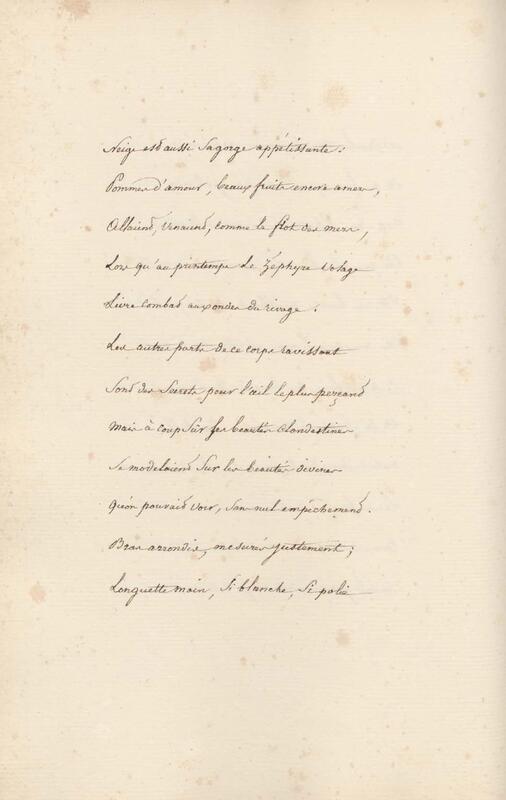 Neige est aussi sa gorge appétissante :
Pommes d'amour, beaux fruits encore amers,
Allaient, venaient, comme le flot des mers,
Lors qu'au printemps le Zéphyre volage
Livre combat aux ondes du rivage.
Les autres parts de ce corps ravissant
Sont des secrets pour l'œil le plus perçant
Mais à coup sûr ses beautés clandestines
Se modelaient sur les beautés divines
Qu'on pouvait voir, sans nul empêchement.
Bras arrondis, mesurés justement ;
Longuette main, si blanche, si polie